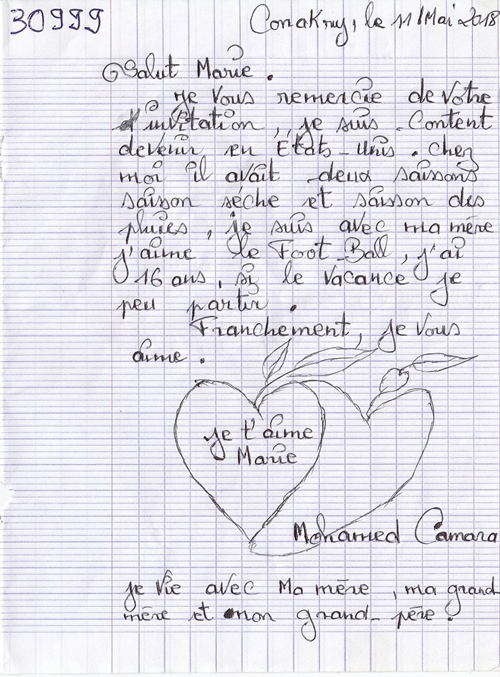 30999
Conakry, le 11/Mai 2018
Salut Marie.
Je vous remercie de votre
invitation, je suis Content
devenir en États-Unis. chez
moi il avait deux saisons
saison sèche et saison des
pluies, je suis avec ma mère
j'aime le Foot-Ball, j'ai
16 ans, si le vacance je
peu partir.
Franchement, je vous
aime.
je t'aime
Marie
Mohamed Camara
je vie avec Ma mère, ma grand
mère et mon grand-père.